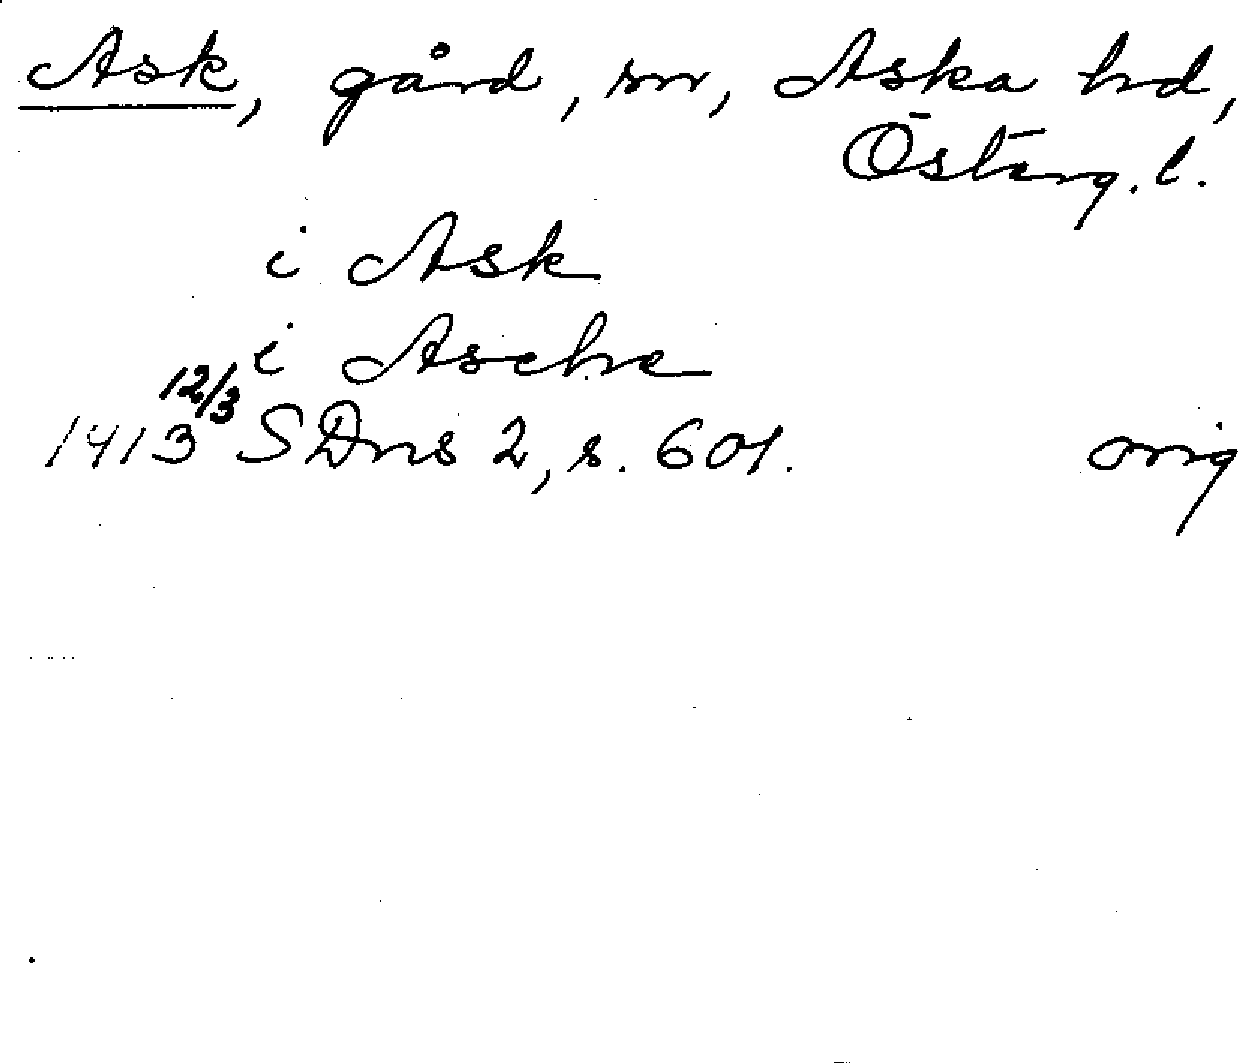 Ask, gård, sn, Aska hd,
Österg. l.
i Ask
i Asche
12/3
1413 SDns 2, s. 601. orig